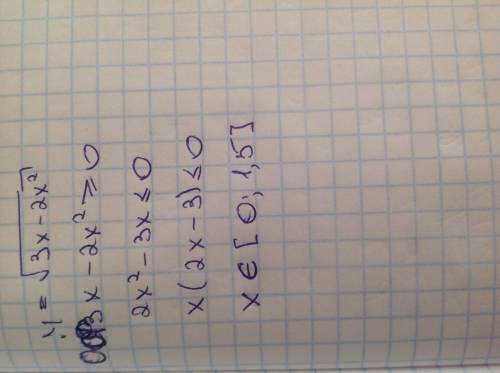 y = √(3x - 2x²)
3x - 2x² ≥ 0
2x² - 3x ≤ 0
x(2x - 3) ≤ 0
x ∈ [0; 1,5]